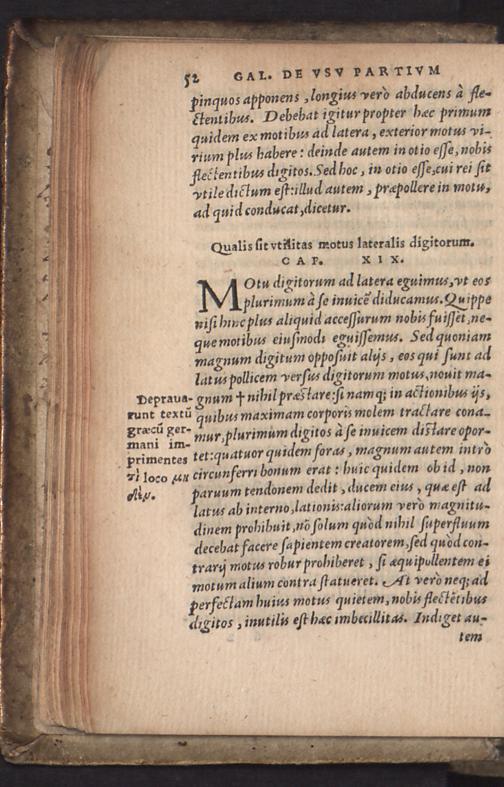 52 GAL. DE VSV PARTIVM
pinquos apponens, longius verò abducens à fle-
ctentibus. Debebat igitur propter hæc primum
quidem ex motibus ad latera, exterior motus vi-
rium plus habere: deinde autem in otio esse, nobis
flectentibus digitos. Sed hoc, in otio esse, cui rei sit
vtile dictum est: illud autem, præpollere in motu,
ad quid conducat, dicetur.
Qualis sit vtilitas motus lateralis digitorum.
CAP. XIX.
MOtu digitorum ad latera eguimus, vt eos
plurimum à se inuicẽ diducamus. Quippe
nisi hinc plus aliquid accessurum nobis fuisset, ne-
que motibus eiusmodi eguissemus. Sed quoniam
magnum digitum opposuit alijs, eos qui sunt ad
latus pollicem versus digitorum motus, nouit ma-
gnum † nihil præstare: si namq; in actionibus ijs,
quibus maximam corporis molem tractare cona-
mur, plurimum digitos à se inuicem distare opor-
tet: quatuor quidem foras, magnum autem intrò
circunferri bonum erat: huic quidem ob id, non
paruum tendonem dedit, ducem eius, quæ est ad
latus ab interno, lationis: aliorum verò magnitu-
dinem prohibuit, nõ solum quòd nihil superfluum
decebat facere sapientem creatorem, sed quòd con-
trarij motus robur prohiberet, si æquipollentem ei
motum alium contra statueret. At verò neq; ad
perfectam huius motus quietem, nobis flectẽtibus
digitos, inutilis est hæc imbecillitas. Indiget au-
tem
Depraua-
runt textũ
græcũ ger-
mani im-
primentes
τὶ loco μη
δὲν.